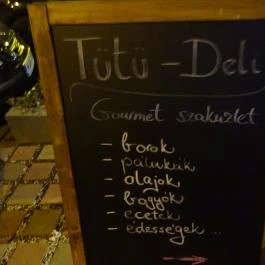 Tütü - Deli
Gourmet szaküzlet
- borok
- pálinkák
- olajok
- bagyók
- ecetek
- édességek ...